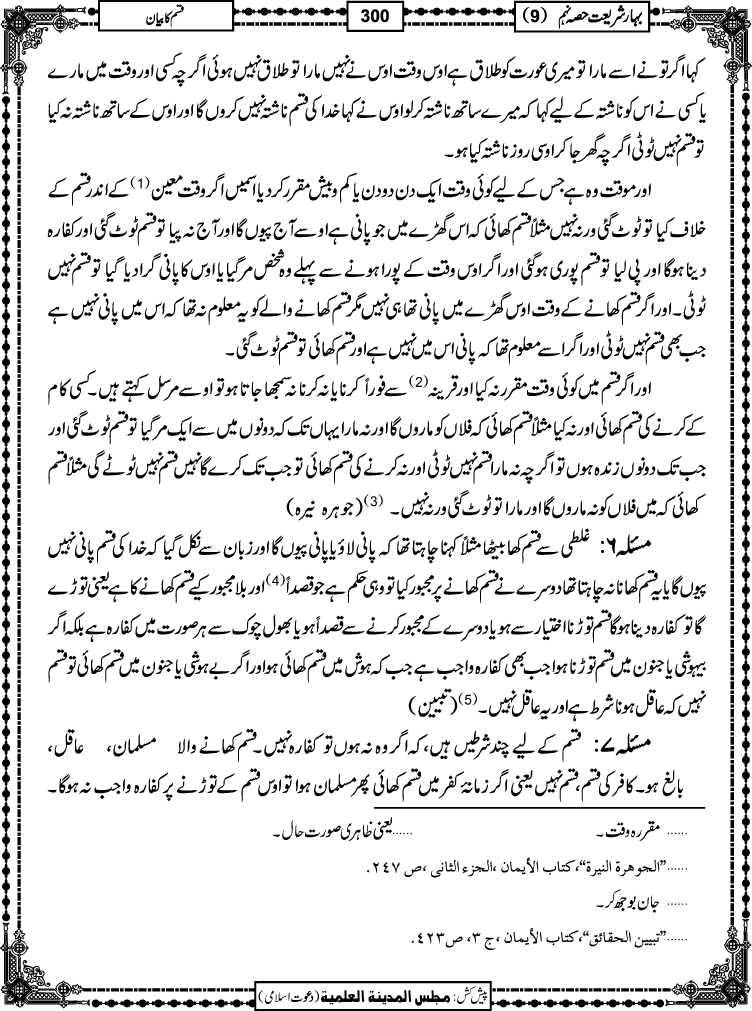 بہارِ شریعت حصہ نہم (9)
300
قسم کا بیان
کہا اگر تو نے اسے مارا تو میری عورت کو طلاق ہے اوس وقت اوس نے نہیں مارا تو طلاق نہیں ہوئی اگرچہ کسی اور وقت میں مارے
یا کسی نے اس کو ناشتہ کے لیے کہا کہ میرے ساتھ ناشتہ کرلو اوس نے کہا خدا کی قسم ناشتہ نہیں کروں گا اور اوس کے ساتھ ناشتہ نہ کیا
تو قسم نہیں ٹوٹی اگرچہ گھر جا کر اوسی روز ناشتہ کیا ہو۔
اور موقت وہ ہے جس کے لیے کوئی وقت ایک دن دو دن یا کم و بیش مقرر کر دیا اسمیں اگر وقت معین (1) کے اندر قسم کے
خلاف کیا تو ٹوٹ گئی ورنہ نہیں مثلاً قسم کھائی کہ اس گھڑے میں جو پانی ہے اوسے آج پیوں گا اور آج نہ پیا تو قسم ٹوٹ گئی اور کفارہ
دینا ہوگا اور پی لیا تو قسم پوری ہوگئی اور اگر اوس وقت کے پورا ہونے سے پہلے وہ شخص مرگیا یا اوس کا پانی گرا دیا گیا تو قسم نہیں
ٹوٹی۔ اور اگر قسم کھانے کے وقت اوس گھڑے میں پانی تھا ہی نہیں مگر قسم کھانے والے کو یہ معلوم نہ تھا کہ اس میں پانی نہیں ہے
جب بھی قسم نہیں ٹوٹی اور اگر اسے معلوم تھا کہ پانی اس میں نہیں ہے اور قسم کھائی تو قسم ٹوٹ گئی۔
اور اگر قسم میں کوئی وقت مقرر نہ کیا اور قرینہ (2) سے فوراً کرنا یا نہ کرنا نہ سمجھا جاتا ہو تو اوسے مرسل کہتے ہیں۔ کسی کام
کے کرنے کی قسم کھائی اور نہ کیا مثلاً قسم کھائی کہ فلاں کو ماروں گا اور نہ مارا یہاں تک کہ دونوں میں سے ایک مرگیا تو قسم ٹوٹ گئی اور
جب تک دونوں زندہ ہوں تو اگرچہ نہ مارا قسم نہیں ٹوٹی اور نہ کرنے کی قسم کھائی تو جب تک کرے گا نہیں قسم نہیں ٹوٹے گی مثلاً قسم
کھائی کہ میں فلاں کو نہ ماروں گا اور مارا تو ٹوٹ گئی ورنہ نہیں۔ (3) (جوہرہ نیرہ)
مسئلہ ۶: غلطی سے قسم کھا بیٹھا مثلاً کہنا چاہتا تھا کہ پانی لاؤ یا پانی پیوں گا اور زبان سے نکل گیا کہ خدا کی قسم پانی نہیں
پیوں گا یا یہ قسم کھانا نہ چاہتا تھا دوسرے نے قسم کھانے پر مجبور کیا تو وہی حکم ہے جو قصداً (4) اور بلا مجبور کیے قسم کھانے کا ہے یعنی توڑے
گا تو کفارہ دینا ہوگا قسم توڑنا اختیار سے ہو یا دوسرے کے مجبور کرنے سے قصداً ہو یا بھول چوک سے ہر صورت میں کفارہ ہے بلکہ اگر
بیہوشی یا جنون میں قسم توڑنا ہوا جب بھی کفارہ واجب ہے جب کہ ہوش میں قسم کھائی ہو اور اگر بے ہوشی یا جنون میں قسم کھائی تو قسم
نہیں کہ عاقل ہونا شرط ہے اور یہ عاقل نہیں۔ (5) (تبیین)
مسئلہ ۷: قسم کے لیے چند شرطیں ہیں، کہ اگر وہ نہ ہوں تو کفارہ نہیں۔ قسم کھانے والا مسلمان، عاقل،
بالغ ہو۔ کافر کی قسم، قسم نہیں یعنی اگر زمانۂ کفر میں قسم کھائی پھر مسلمان ہوا تو اوس قسم کے توڑنے پر کفارہ واجب نہ ہوگا۔
...... مقررہ وقت۔ ......یعنی ظاہری صورت حال۔
......”الجوھرۃ النیرۃ“،کتاب الأیمان ،الجزء الثانی ،ص ۲۴۷.
...... جان بوجھ کر۔
......”تبیین الحقائق“،کتاب الأیمان ،ج ۳، ص۴۲۳.
پیش کش: مجلس المدینة العلمیة (دعوت اسلامی)